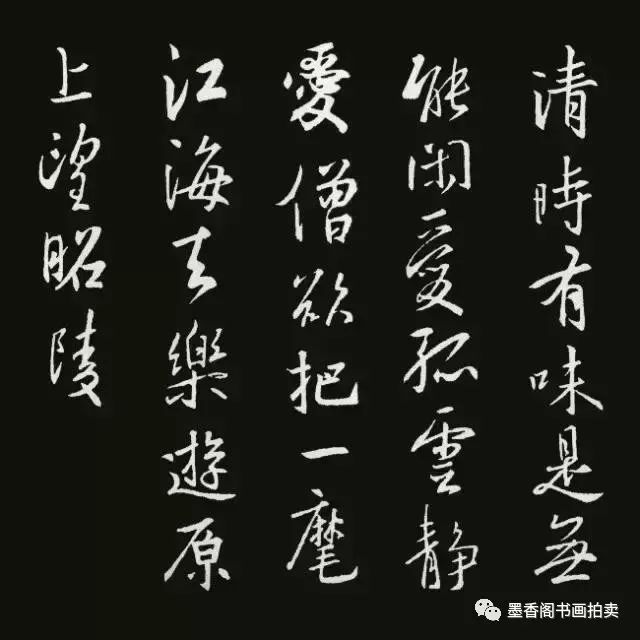 清時有味是無
能閑愛孤雲静
愛僧欲把一麾
江海去樂遊原
上望昭陵
墨香阁书画拍卖